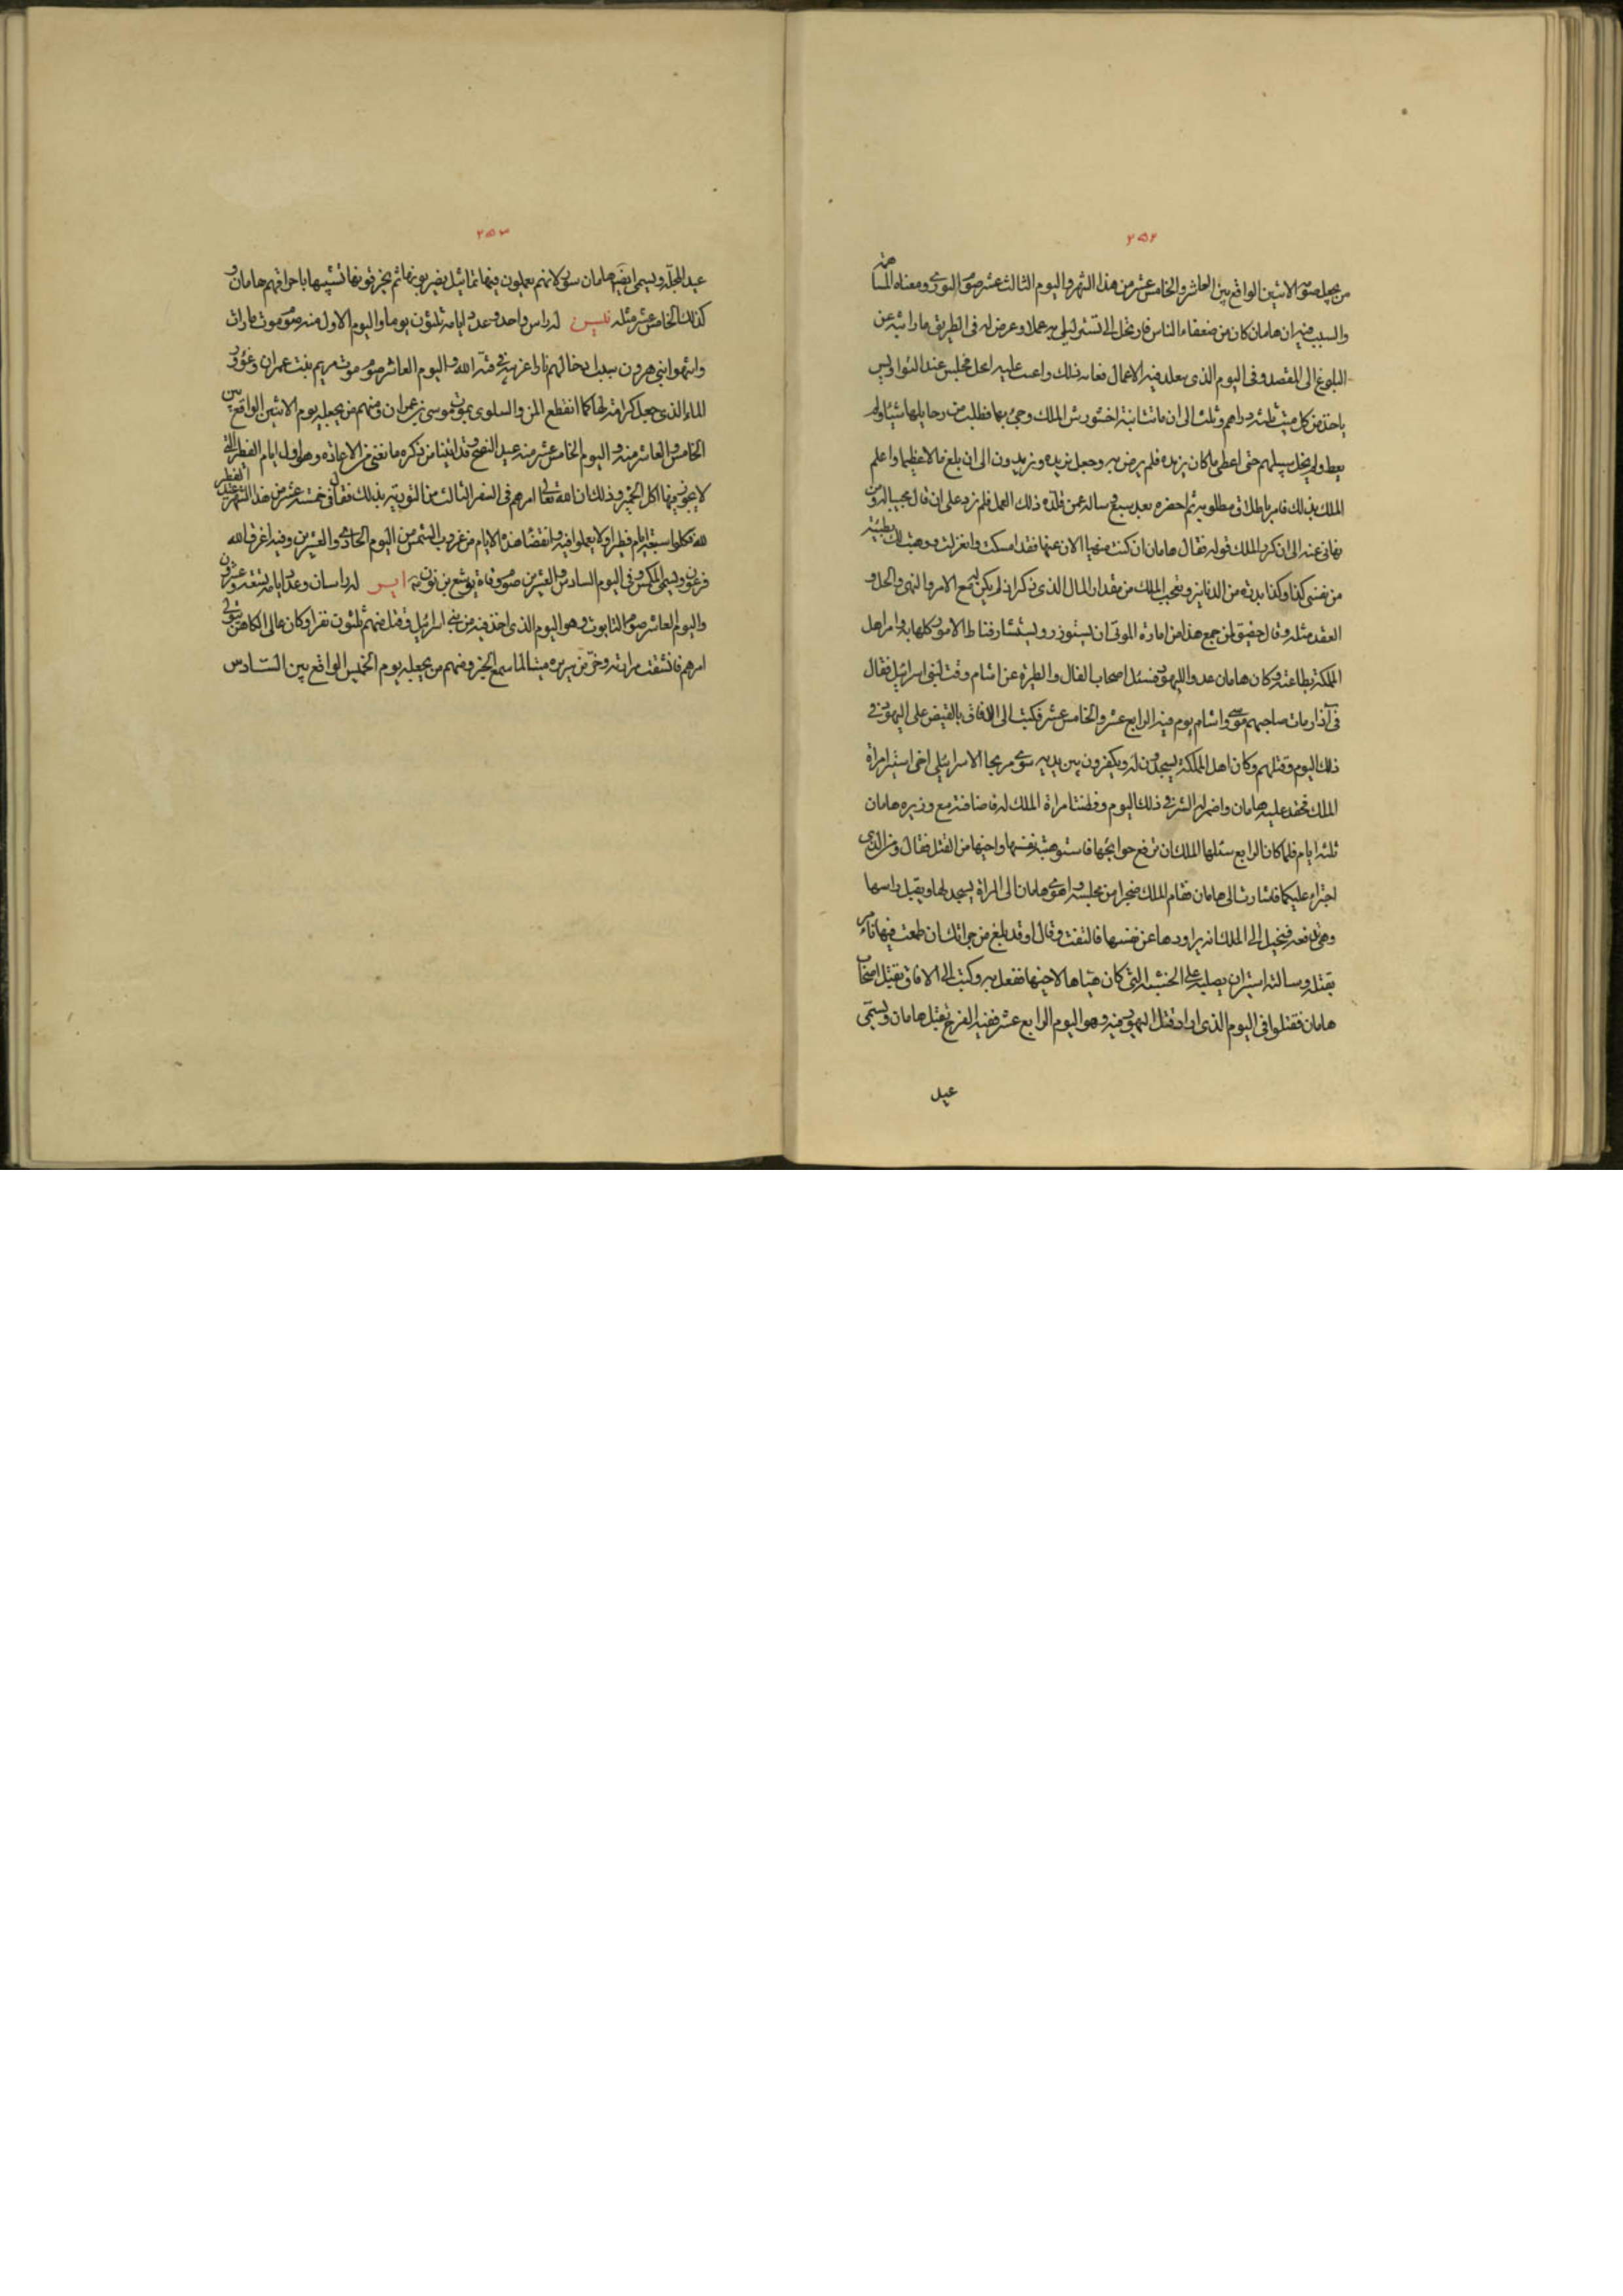 ٢٥٢
من يجعل صوم الاثنين الواقع بين العاشر والخامس عشر من هذا الشهر واليوم الثالث عشر صوم البورى ومعناه المساهمة
والسبب فيه ان هامان كان من ضعفاء الناس فارتحل الى تستر ليلى بها عملا وعرض له فى الطريق ما راثه عن
البلوغ الى المقصد وفى اليوم الذى يعلد فيه الاعمال ففاته ذلك واعيت عليه الحيل فجلس عند النواويس
ياخذ من كل ميت ثلثة دراهم وثلث الى ان ماتت ابنة اخشورش الملك وجئ بها فطلب من رحامليها شيئا ولم
يعط ولم يخل سبيلهم حتى اعطى ما كان يريده فلم يرض به وجعل يزيده ويزيدون الى ان بلغ مالا عظيما واعلم
الملك بذلك فامر باطلاق مطلوبه ثم احضره بعد سبع وساله عمن قلده ذلك العمل فلم يزد على ان قال مجيبا له ومن
نهانى عنه الى ان كرر الملك قوله فقال هامان ان كنت منهيا الان عنها فقد امسكت وانعزلت ووهبت لك بطيبة
من نفسى كذا وكذا بدرة من الدنانير وتعجب الملك من مقدار المال الذى ذكر اذ لم يكن يجمع مع الامر والنهى والحل و
العقد مثله وقال حقيق لمن جمع هذا من امارة الموتى ان يستوزر ويستشار فناط الامور كلها به وامر اهل
المملكة بطاعته وكان هامان عدوا لليهود فسئل اصحاب الفال والطيرة عن اشام وقت لبنى اسرائيل فقال
فى آذار مات صاحبهم موسى واشام يوم فيه الرابع عشر والخامس عشر فكتب الى الافاق بالقبض على اليهود فى
ذلك اليوم وقتلهم وكان اهل المملكة يسجدون له ويكفرون بين يديه سوى مردخا الاسرائيلى اخى استير امراة
الملك فحقد عليه هامان واضمر له الشر فى ذلك اليوم وفطنت امراة الملك له فاضافته مع وزيره هامان
ثلثة ايام فلما كان الرابع سئلها الملك ان ترفع حوائجها فاستوهبته نفسها واخيها من القتل فقال ومن الذى
اجترء عليكما فاشارت الى هامان فقام الملك ضجرا من مجلسه واهوى هامان الى المراة يسجد لها ويقبل راسها
وهى تدفعه فتخيل الى الملك انه يراودها عن نفسها فالتفت وقال اوقد بلغ من جراتك ان طمعت فيها فامر
بقتله وسالته استير ان يصلبه على الخشبة التى كان هياها لاخيها ففعل به وكتب الى الافاق بقتل اصحاب
هامان فقتلوا فى اليوم الذى اراد قتل اليهود فيه وهو اليوم الرابع عشر ففيه الفرح بقتل هامان ويسمى
عيد
٢٥٣
عيد المجلة ويسمى ايضا هامان سور لانهم يعملون فيها تماثيل يضربونها ثم يحرقونها تشبيها باحراقهم هامان و
كذلك الخامس عشر مثله نيسن له راس واحد وعدد ايامه ثلثون يوما واليوم الاول منه صوم موت
ابنى هرون بسبب ادخالهم نارا غريبة فى قبة الله واليوم العاشر صوم موت مريم بنت عمران وغؤور
الماء الذى جعل كرامة لها كما انقطع المن والسلوى بموت موسى بن عمران ومنهم من يجعله يوم الاثنين الواقع بين
الخامس والعاشر منه واليوم الخامس عشر منه عيد الفصح وقد اتينا من ذكره ما يغنى من الاعادة وهو اول ايام الفطير التى
لا يجوز فيها اكل الخمير وذلك ان الله تعالى امرهم فى السفر الثالث من التورية بذلك فقال فى خمسة عشر من هذا الشهر عيد الفطير
لله فكلوا سبعة ايام فطيرا ولا يعملوا فيه وانقضا هذه الايام من غروب الشمس من اليوم الحادى والعشرين وفيه اغرق الله
فرعون ويسمى المكس وفى اليوم السادس والعشرين صوم وفاة يوشع بن نون ايـر له راسان وعدد ايامه تسعة وعشرون
واليوم العاشر صوم التابوت وهو اليوم الذى اخذ فيه من بنى اسرائيل وقتل منهم ثلثون نفرا وكان عالى الكاهن يتولى
امرهم فانشقت مرارته وخر من سريره ميتا لما سمع الخبر ومنهم من يجعله يوم الخميس الواقع بين السادس